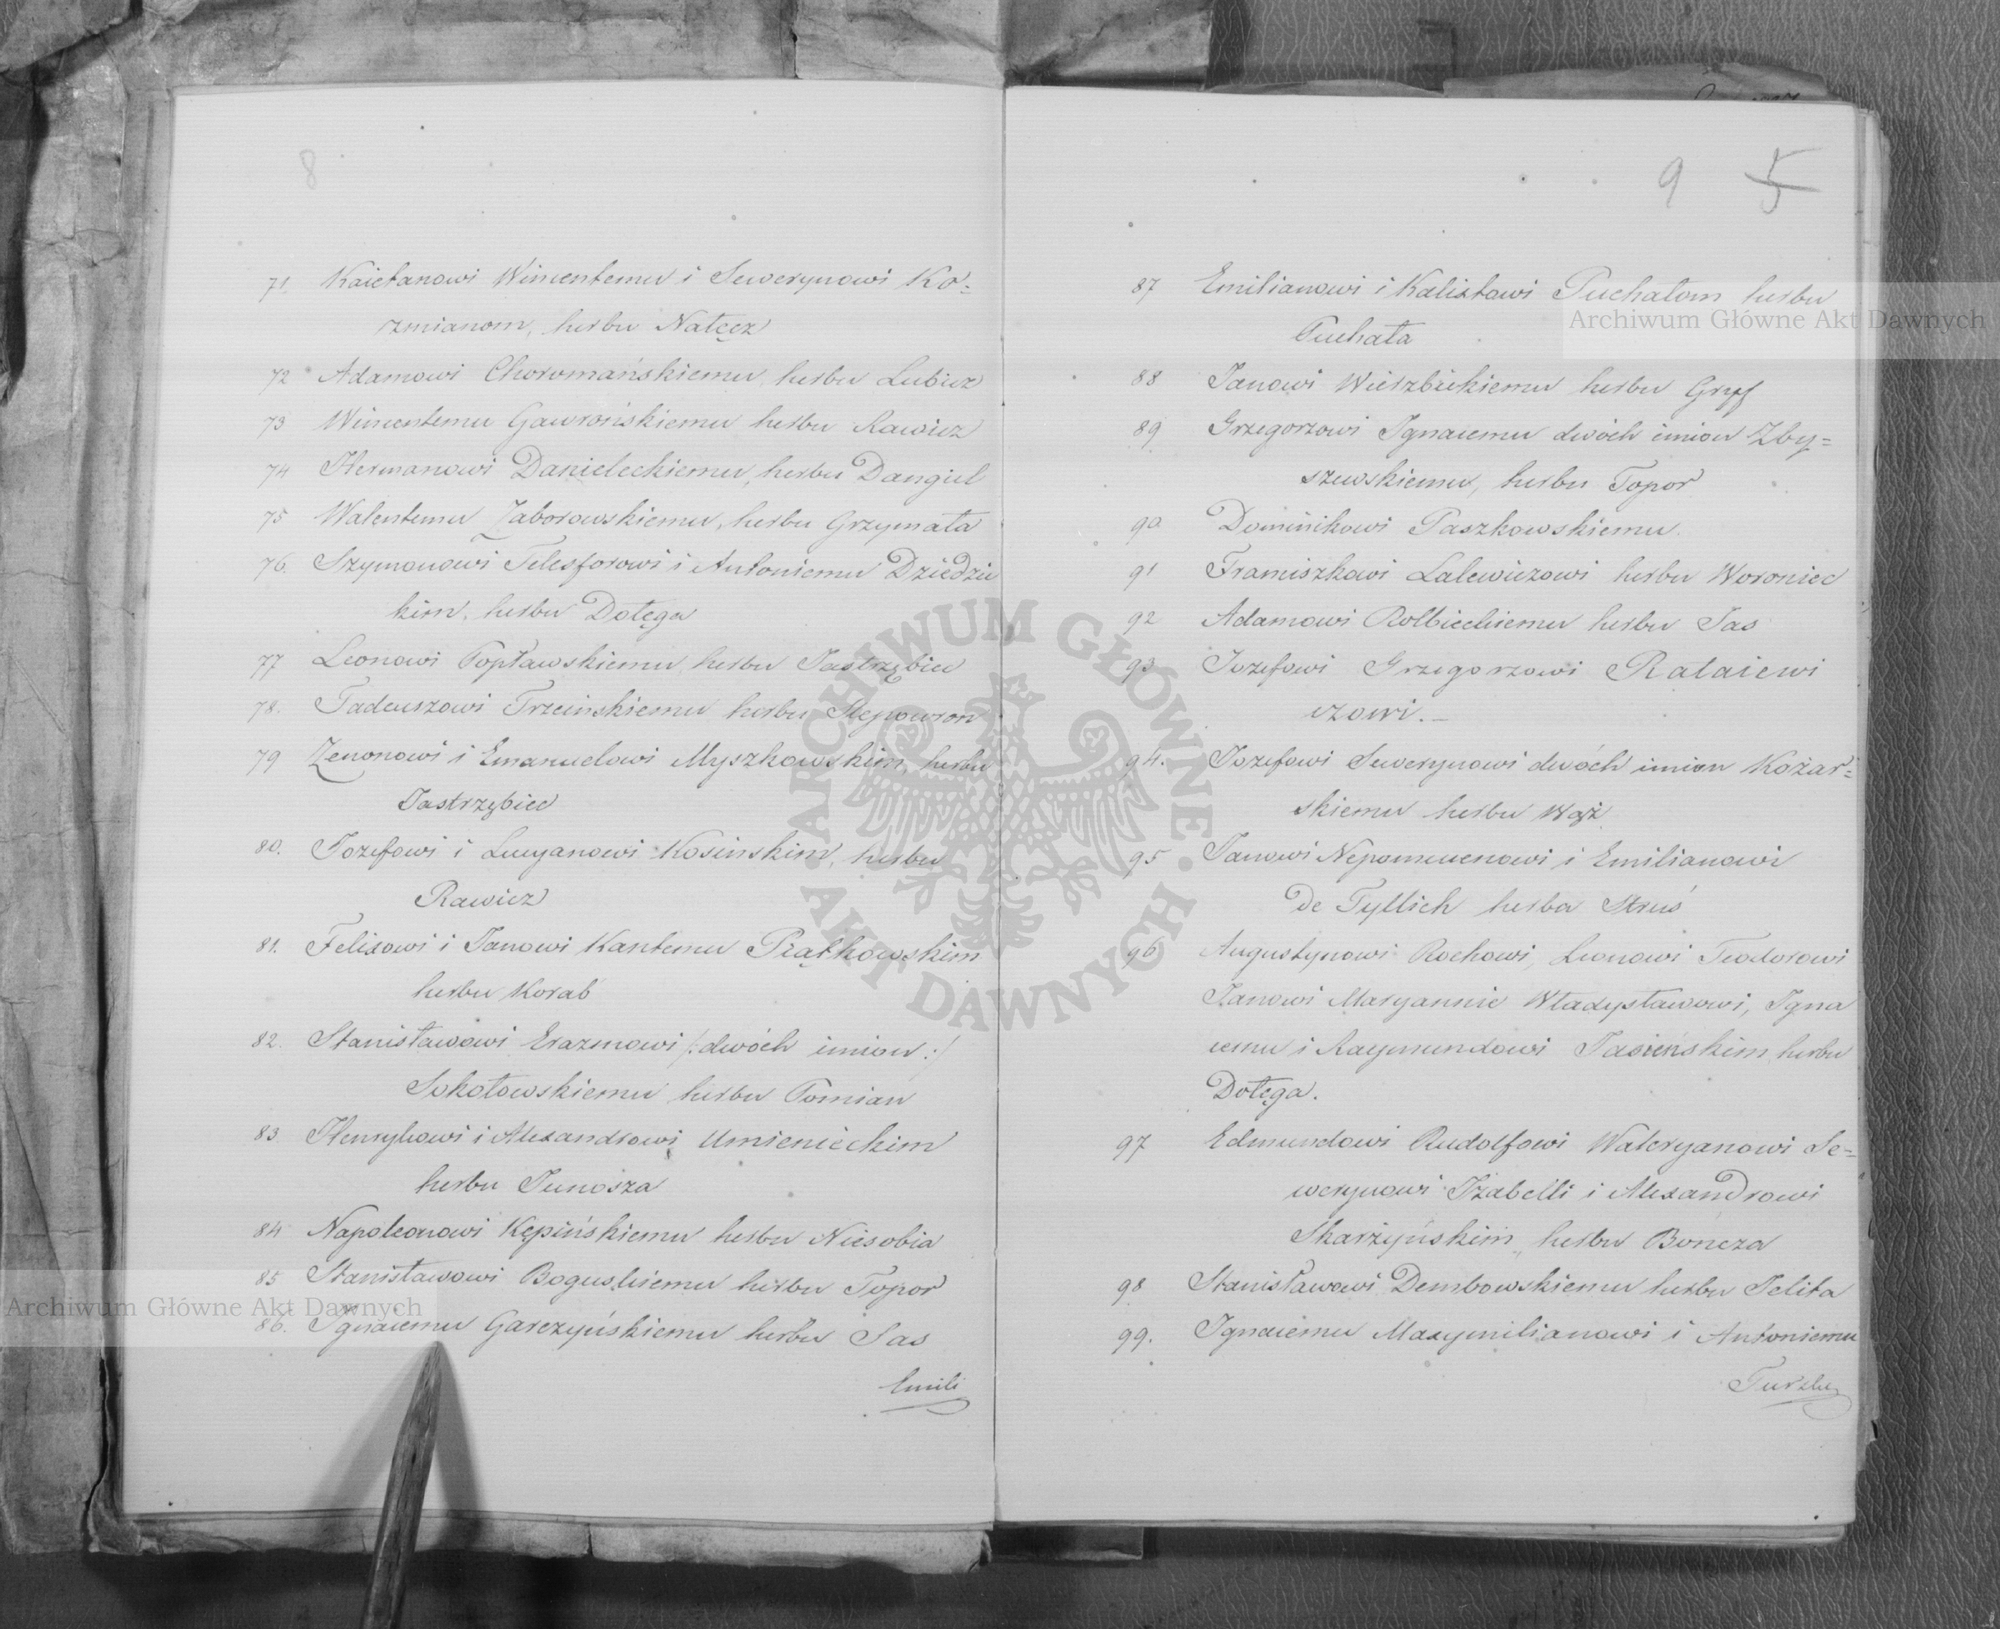 8
71 Kaietanowi Wincentemu i Sewerynowi Ko=
zmianom, herbu Nałęcz
72 Adamowi Choromańskiemu herbu Lubicz
73 Wincentemu Gawrońskiemu herbu Rawicz
74 Hermanowi Danieleckiemu, herbu Dangiel
75 Walentemu Zaborowskiemu, herbu Grzymała
76. Szymonowi Telesforowi i Antoniemu Dziedzic
kim, herbu Dołęga
77 Leonowi Popławskiemu, herbu Jastrzębiec
78. Tadeuszowi Trzcinskiemu herbu Slepowron
79 Zenonowi i Emanuelowi Myszkowskim, herbu
Jastrzębiec
80. Jozefowi i Lucyanowi Kosinskim, herbu
Rawicz
81. Felixowi i Janowi Kantemu Piątkowskim
herbu Korab
82. Stanisławowi Erazmowi /: dwóch imion :/
Sokołowskiemu herbu Pomian
83. Henrykowi i Alexandrowi Umienieckim
herbu Junosza
84 Napoleonowi Kępińskiemu herbu Niesobia
85 Stanisławowi Boguskiemu herbu Topor
86. Ignacemu Garczyńskiemu herbu Sas
Emili
9 5
87 Emilianowi i Kalixtowi Puchałom herbu
Puchała
88 Janowi Wierzbickiemu herbu Gryf
89 Grzegorzowi Ignacemu dwóch imion Zby=
szewskiemu, herbu Topor
90 Dominikowi Paszkowskiemu.
91 Franciszkowi Lalewiczowi herbu Woroniec
92 Adamowi Rolbieckiemu herbu Sas
93 Jozefowi Grzegorzowi Rataiewi
czowi. —
94. Jozefowi Sewerynowi dwóch imion Kożar=
skiemu herbu Wąż
95 Janowi Nepomucenowi i Emilianowi
De Tyllich herbu Struś
96 Augustynowi Rochowi, Leonowi Teodorowi
Janowi Maryannie Władysławowi, Igna
cemu i Raymundowi Jasieńskim, herbu
Dołęga.
97 Edmundowi Rudolfowi Waleryanowi Se=
werynowi Izabelli i Alexandrowi
Skarżyńskim, herbu Bończa
98 Stanisławowi Dembowskiemu herbu Jelita
99. Ignacemu Maxymilianowi i Antoniemu
Archiwum Główne Akt Dawnych
Archiwum Główne Akt Dawnych
ARCHIWUM GŁÓWNE · AKT DAWNYCH ·